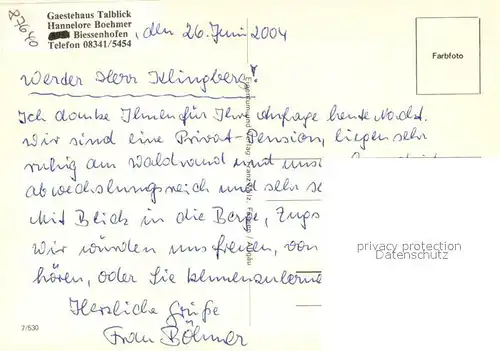 27640
Gaestehaus Talblick
Hannelore Boehmer
Biessenhofen
Telefon 08341/5454
, den 26. Juni 2004
Farbfoto
Werder Herr Klingberg!
Ich danke Ihnen für Ihre Anfrage heute Nacht.
Wir sind eine Privat-Pension, liegen sehr
ruhig am Waldrand und uns
abwechslungsreich und sehr sc
Mit Blick in die Berge, Zugs
Wir würden uns freuen, von
hören, oder Sie kennenzulerne
Herzliche Grüße
Frau Böhmer
7/530
Eigentum und Verlag Franz Milz, Füssen / Allgäu
privacy protection
AnsichtskartenPool.de